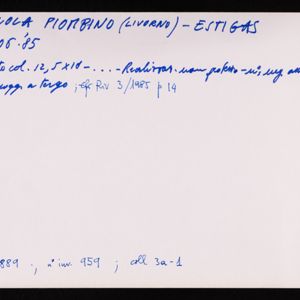 PIOMBINO (LIVORNO) - ESTIGAS
06.'85
to col. 12,5x18 - .... - Realizzaz. - n°, neg.
a tergo ; cfr Riv 3/1985 p 14
889 ., n° inv. 959 ; coll 3a-1